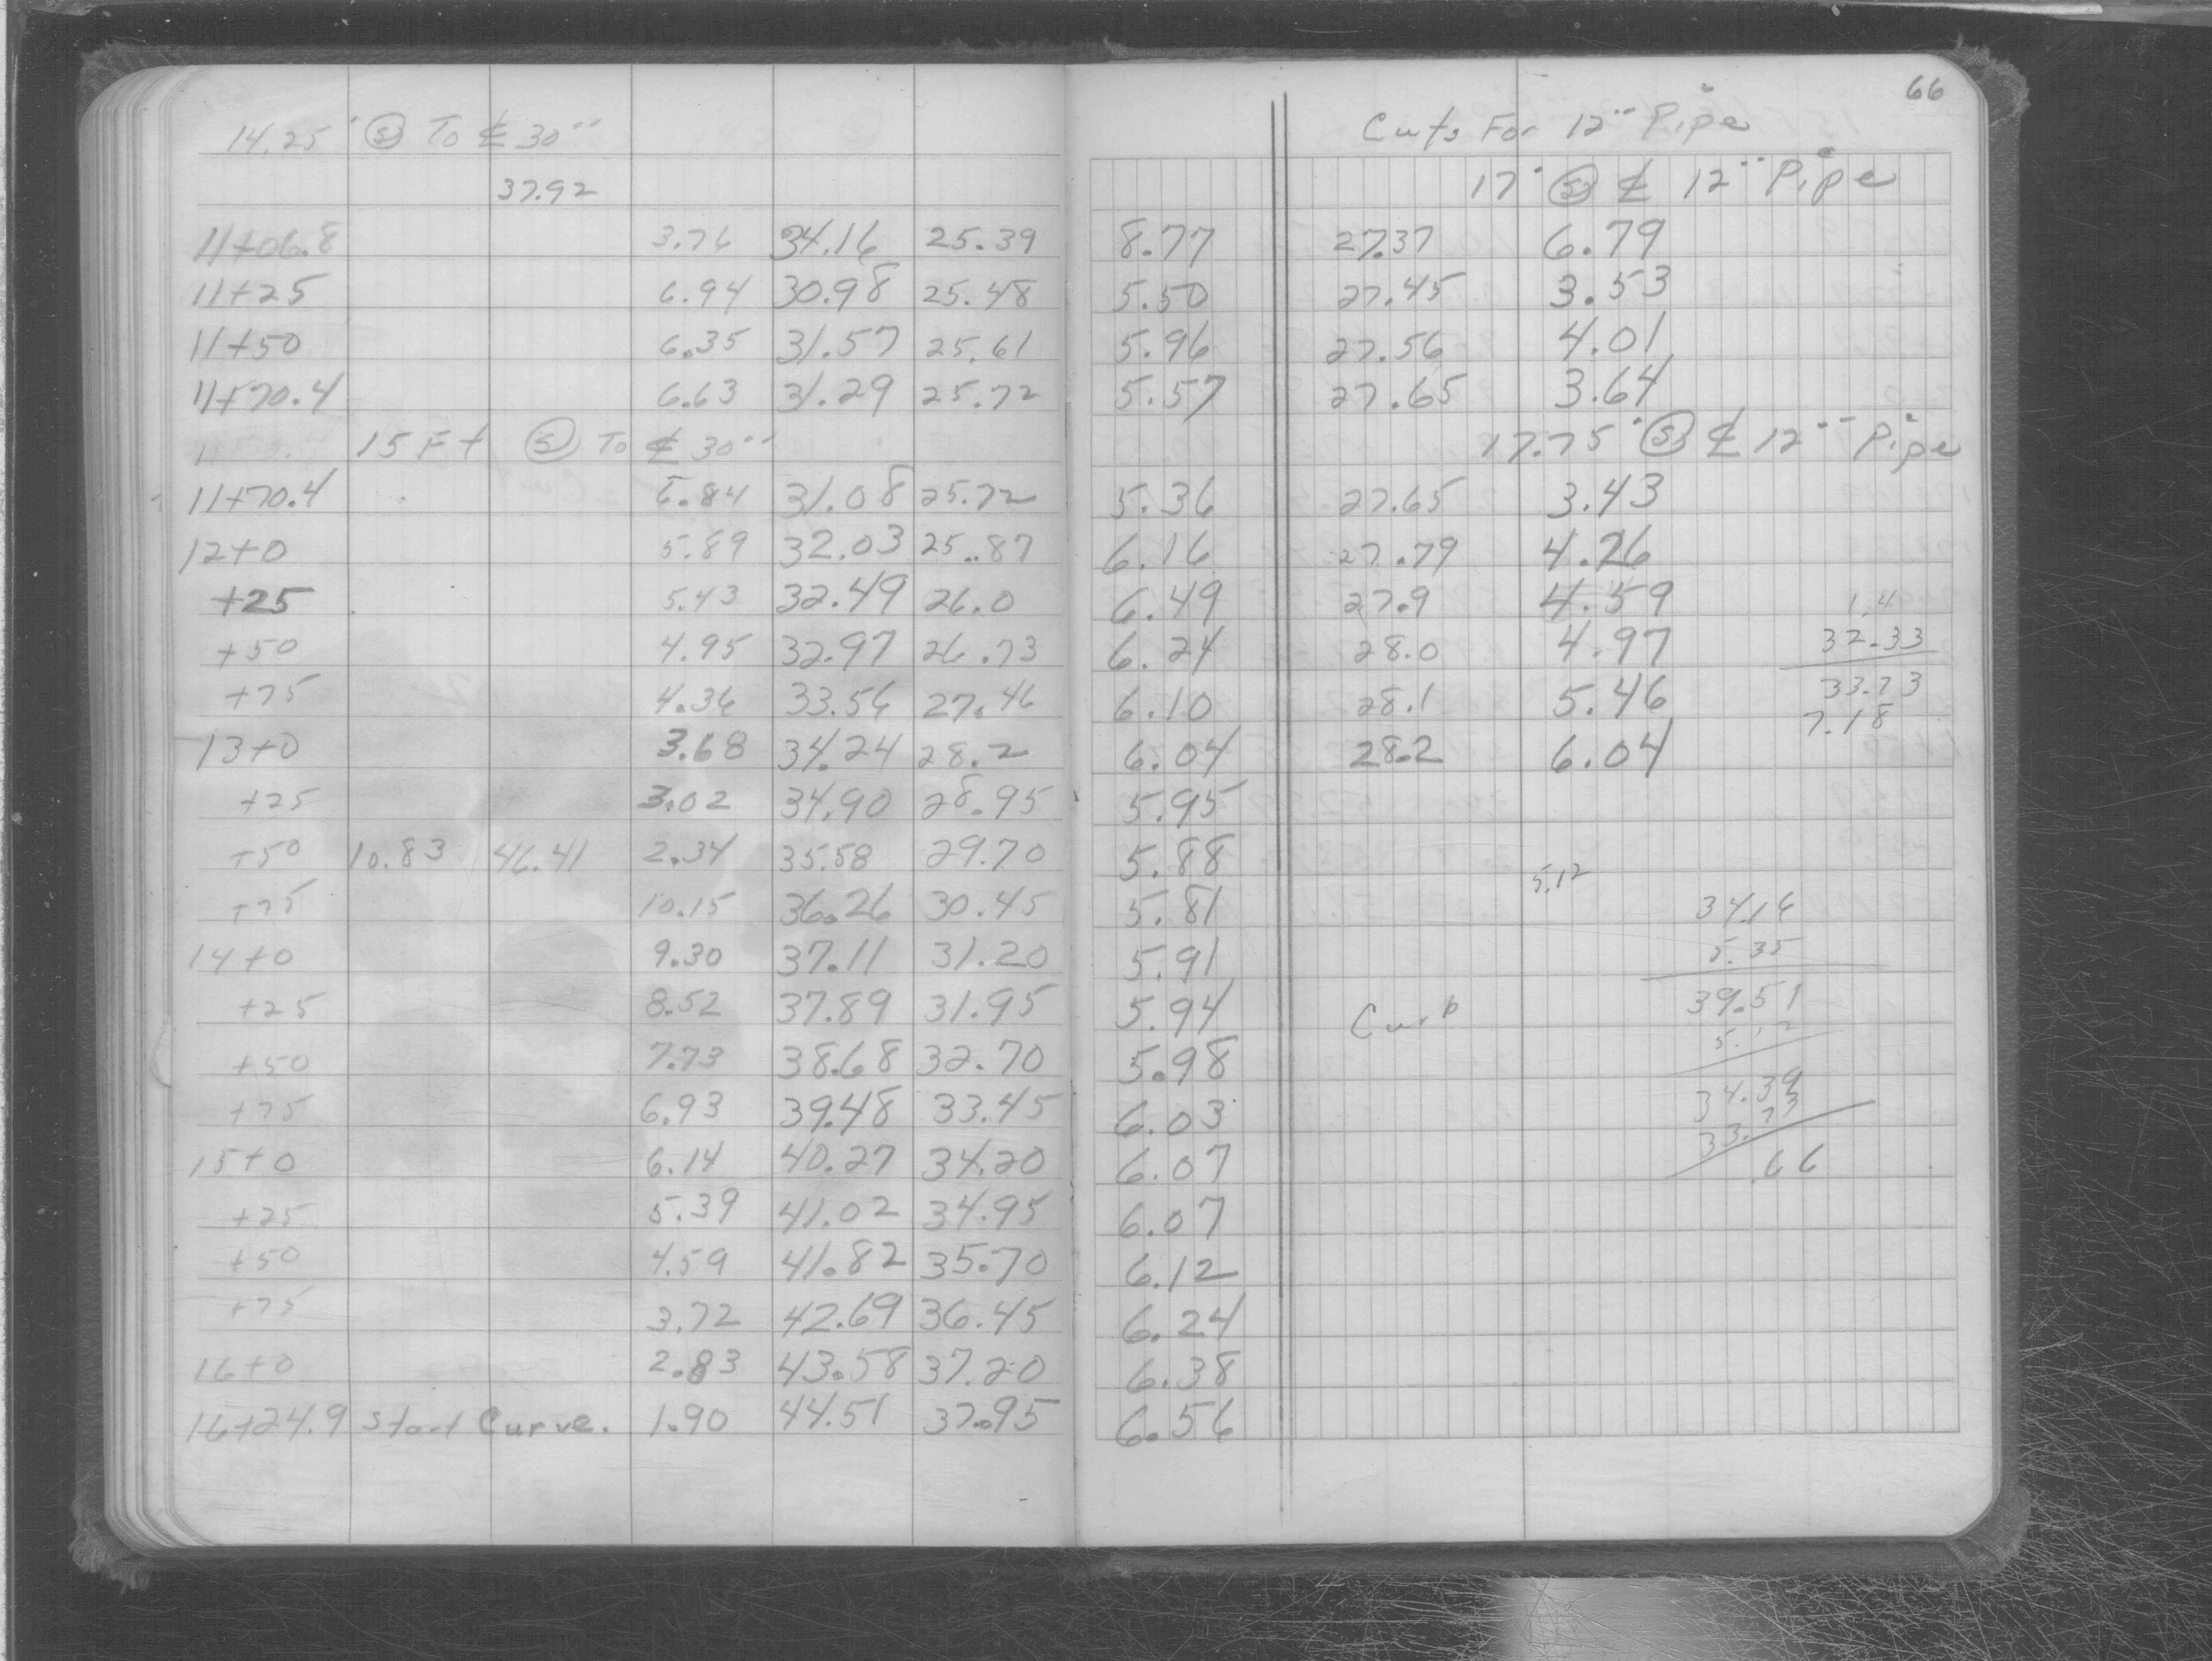 66
14.25' Ⓢ To ℄ 30" Cuts For 12" Pipe
37.92 17' Ⓢ ℄ 12" Pipe
11+06.8 3.76 34.16 25.39 8.77 27.37 6.79
11+25 6.94 30.98 25.48 5.50 27.45 3.53
11+50 6.35 31.57 25.61 5.96 27.56 4.01
11+70.4 6.63 31.29 25.72 5.57 27.65 3.64
15 Ft Ⓢ To ℄ 30" 17.75' Ⓢ ℄ 12" Pipe
11+70.4 6.84 31.08 25.72 5.36 27.65 3.43
12+0 5.89 32.03 25.87 6.16 27.79 4.26
+25 5.43 32.49 26.0 6.49 27.9 4.59 1.4
+50 4.95 32.97 26.73 6.24 28.0 4.97 32.33
+75 4.36 33.56 27.46 6.10 28.1 5.46 33.73
7.18
13+0 3.68 34.24 28.2 6.04 28.2 6.04
+25 3.02 34.90 28.95 5.95
+50 10.83 46.41 2.34 35.58 29.70 5.88
5.12
+75 10.15 36.26 30.45 5.81 34.16
14+0 9.30 37.11 31.20 5.91 5.35
+25 8.52 37.89 31.95 5.94 Curb 39.51
5.12
+50 7.73 38.68 32.70 5.98
+75 6.93 39.48 33.45 6.03 34.39
33.73
15+0 6.14 40.27 34.20 6.07 .66
+25 5.39 41.02 34.95 6.07
+50 4.59 41.82 35.70 6.12
+75 3.72 42.69 36.45 6.24
16+0 2.83 43.58 37.20 6.38
16+24.9 Start Curve. 1.90 44.51 37.95 6.56